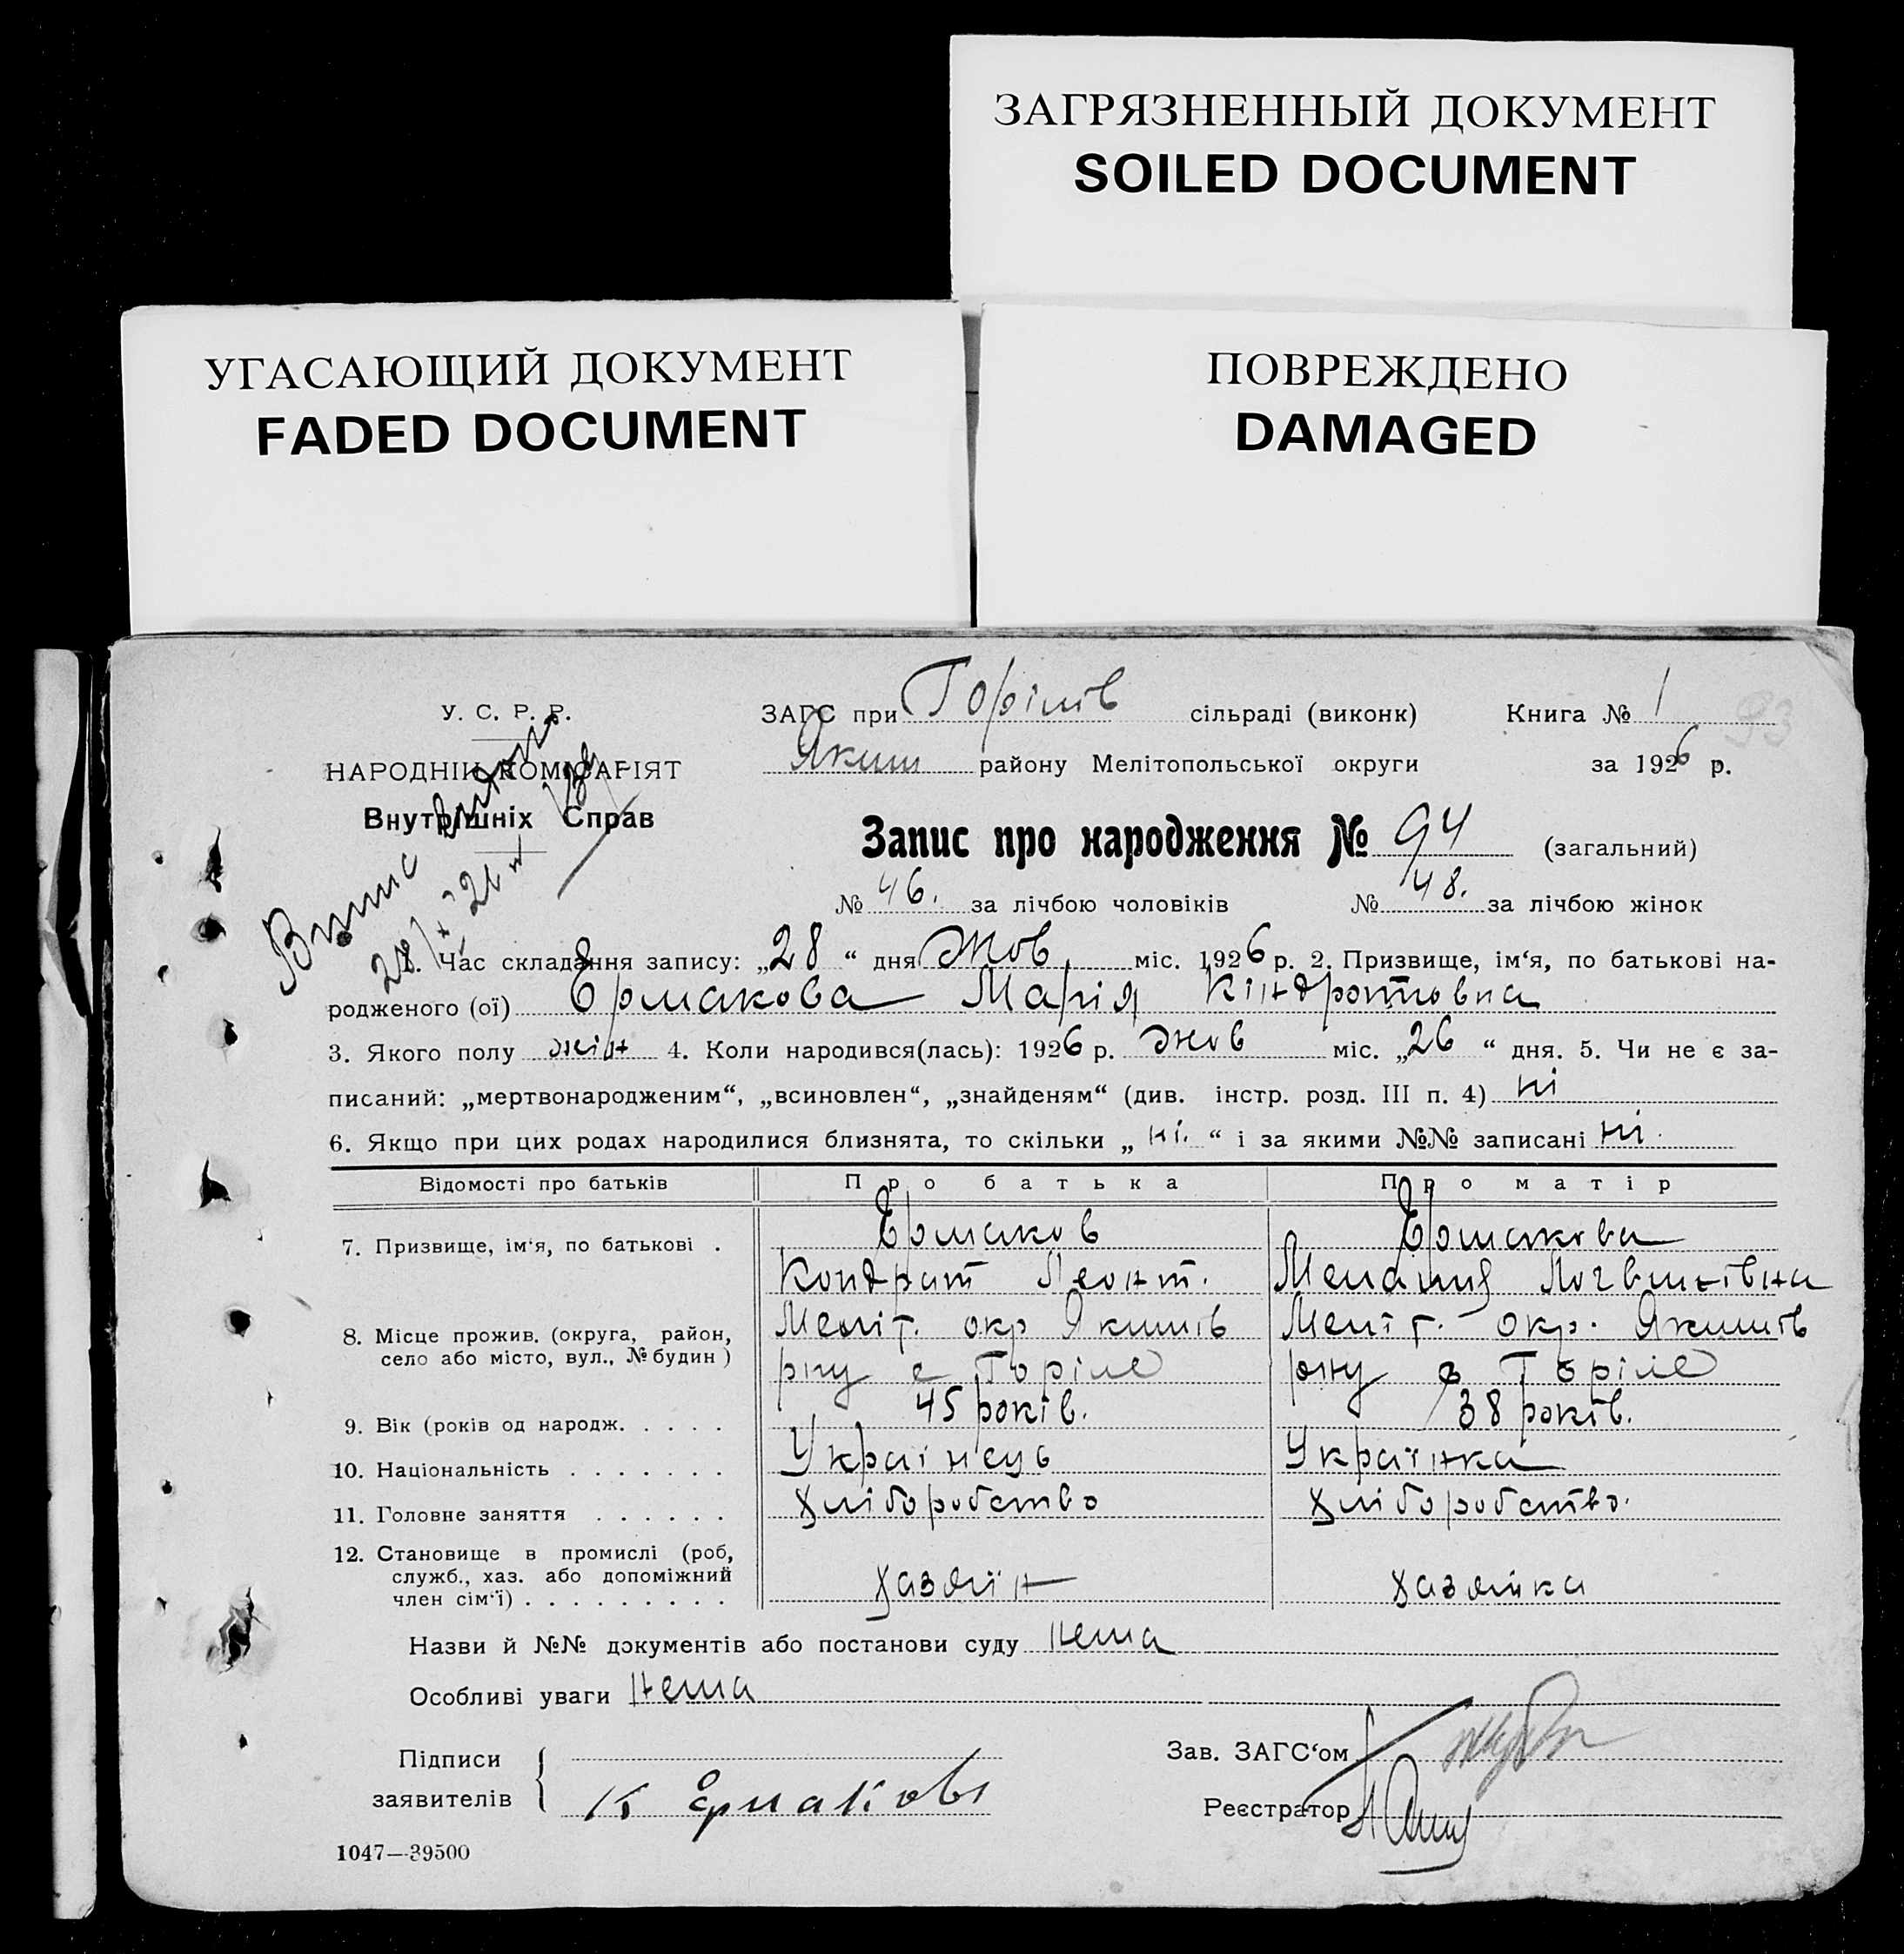 ЗАГРЯЗНЕННЫЙ ДОКУМЕНТ
SOILED DOCUMENT
УГАСАЮЩИЙ ДОКУМЕНТ
FADED DOCUMENT
ПОВРЕЖДЕНО
DAMAGED
У. С. Р. Р.
НАРОДНІЙ КОМІСАРІЯТ
Внутрішніх Справ
ЗАГС при Горілів сільраді (виконк) Книга № 1
93
Яким району Мелітопольської округи за 1926 р.
Запис про народження № 94 (загальний)
№ 46. за лічбою чоловіків № 48. за лічбою жінок
1. Час складання запису: „28“ дня Жов міс. 1926 р. 2. Призвище, ім‘я, по батькові на-
родженого (ої) Ермакова Марія Кіндротовна
3. Якого полу жін 4. Коли народився(лась): 1926 р. жов міс. „26“ дня. 5. Чи не є за-
писаний: „мертвонародженим“, „всиновлен“, „знайденям“ (див. інстр. розд. III п. 4) ні
6. Якщо при цих родах народилися близнята, то скільки „ні.“ і за якими №№ записані ні.
Відомості про батьків Про батька Про матір
7. Призвище, ім‘я, по батькові . Ермаков Ермакова
Кондрат Леонт. Меланія Логвинівна
8. Місце прожив. (округа, район, Меліт. окр Якимів Меліт. окр. Якимів
село або місто, вул., № будин) рну с Горіле рну с Горіле
9. Вік (років од народж. . . . . 45 років. 38 років.
10. Національність . . . . . . . Українець Українка
11. Головне заняття . . . . . . хліборобство хліборобство.
12. Становище в промислі (роб,
служб., хаз. або допоміжний
член сім‘ї) . . . . . . . . . хазяїн хазяйка
Назви й №№ документів або постанови суду нема
Особливі уваги Нема
Підписи
заявителів К Ермаковъ
Зав. ЗАГС‘ом
Реєстратор
1047—39500